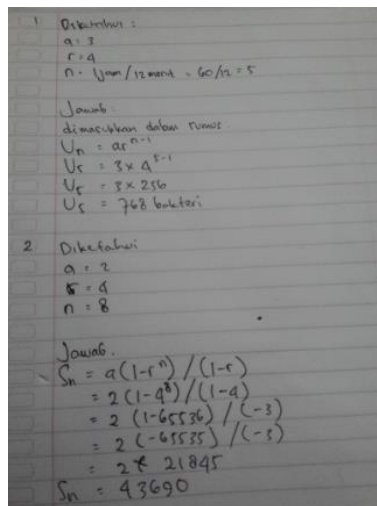 1 Diketahui :
a = 3
r = 4
n = 1jam / 12 menit = 60/12 = 5
Jawab.
dimasukkan dalam rumus
Un = ar^n-1
U5 = 3 x 4^5-1
U5 = 3 x 256
U5 = 768 bakteri
2 Diketahui
a = 2
r = 4
n = 8
Jawab.
Sn = a(1-r^n) / (1-r)
= 2 (1-4^8) / (1-4)
= 2 (1-65536) / (-3)
= 2 (-65535) / (-3)
= 2 x 21845
Sn = 43690